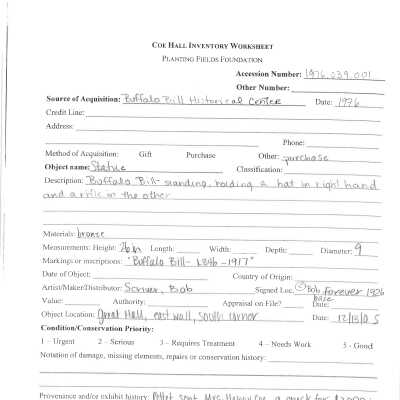 COE HALL INVENTORY WORKSHEET
PLANTING FIELDS FOUNDATION
Accession Number: 1976.039.001
Other Number:
Source of Acquisition: Buffalo Bill Historical Center Date: 1976
Credit Line:
Address:
Phone:
Method of Acquisition: Gift Purchase Other: purchase
Object name: Statue Classification:
Description: Buffalo Bill - standing, holding a hat in right hand
and a rifle in the other
Materials: bronze
Measurements: Height: 26in Length: Width: Depth: Diameter: 9
Markings or inscriptions: "Buffalo Bill - 1846 - 1917"
Date of Object: Country of Origin:
Artist/Maker/Distributor: Scriver, Bob Signed Loc. Bob forever 1976
base
Value: Authority: Appraisal on File? Date:
Object Location: Great Hall, east wall, south corner Date: 12/15/05
Condition/Conservation Priority:
1 - Urgent 2 - Serious 3 - Requires Treatment 4 - Needs Work 5 - Good
Notation of damage, missing elements, repairs or conservation history:
Provenance and/or exhibit history: sent Mrs. Henry Coe a check for